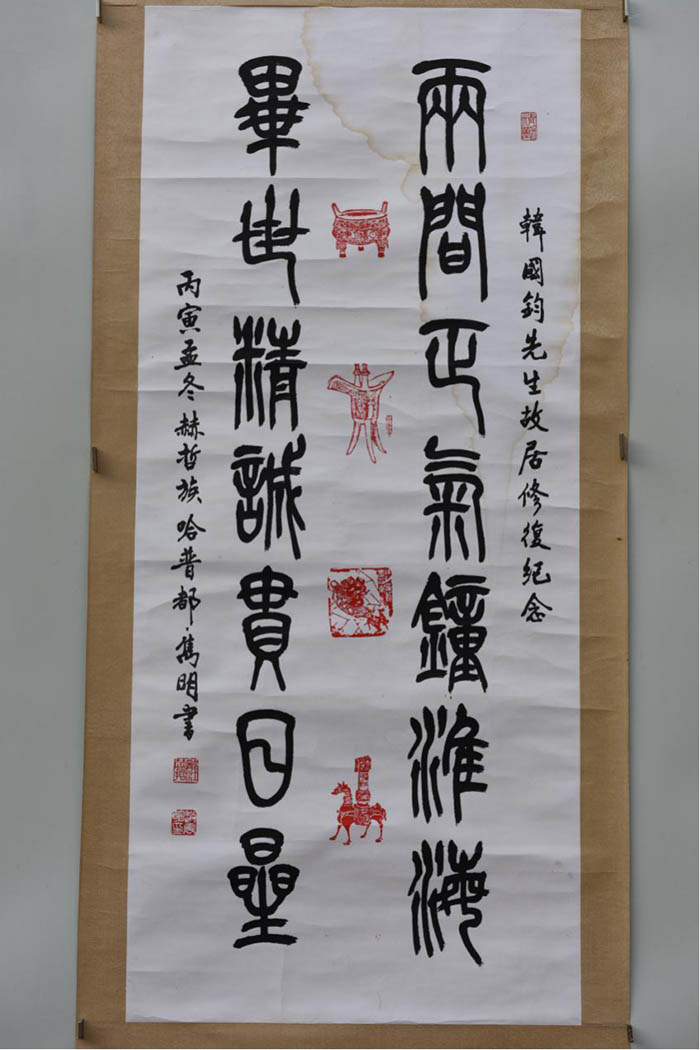 韓國鈞先生故居修復紀念
兩間正氣鐘淮海
畢世精誠貫日星
丙寅孟冬赫哲族哈普都·雋明書